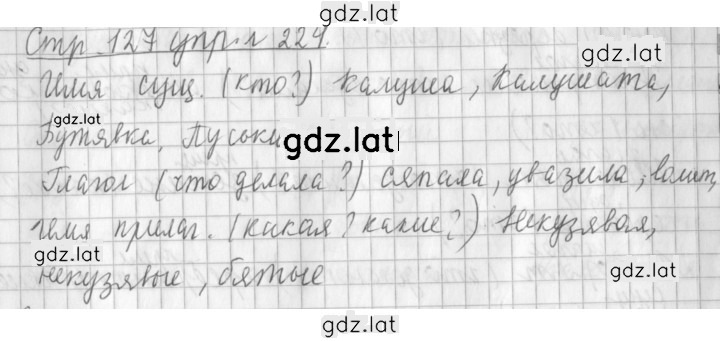 gdz.lat
Стр 127 упр. 224.
gdz.lat
Имя сущ. (кто?) Калуша, Калушата,
gdz.lat
Бутявка, Пуськи
gdz.lat
Глагол (что делала?) сяпала, увазила,
имя прилаг. (какая? какие?) Некузявая,
gdz.lat
gdz.lat
некузявые, бятые
gdz.lat